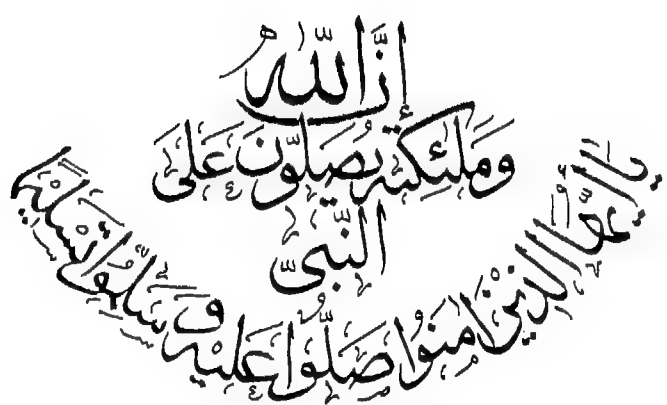 إِنَّ اللّٰهَ
وَمَلٰئِكَتَهٗ يُصَلُّونَ عَلَى
النَّبِيِّ
يٰاَيُّهَا الَّذِيْنَ اٰمَنُوا صَلُّوا عَلَيْهِ وَسَلِّمُوا تَسْلِيْمًا